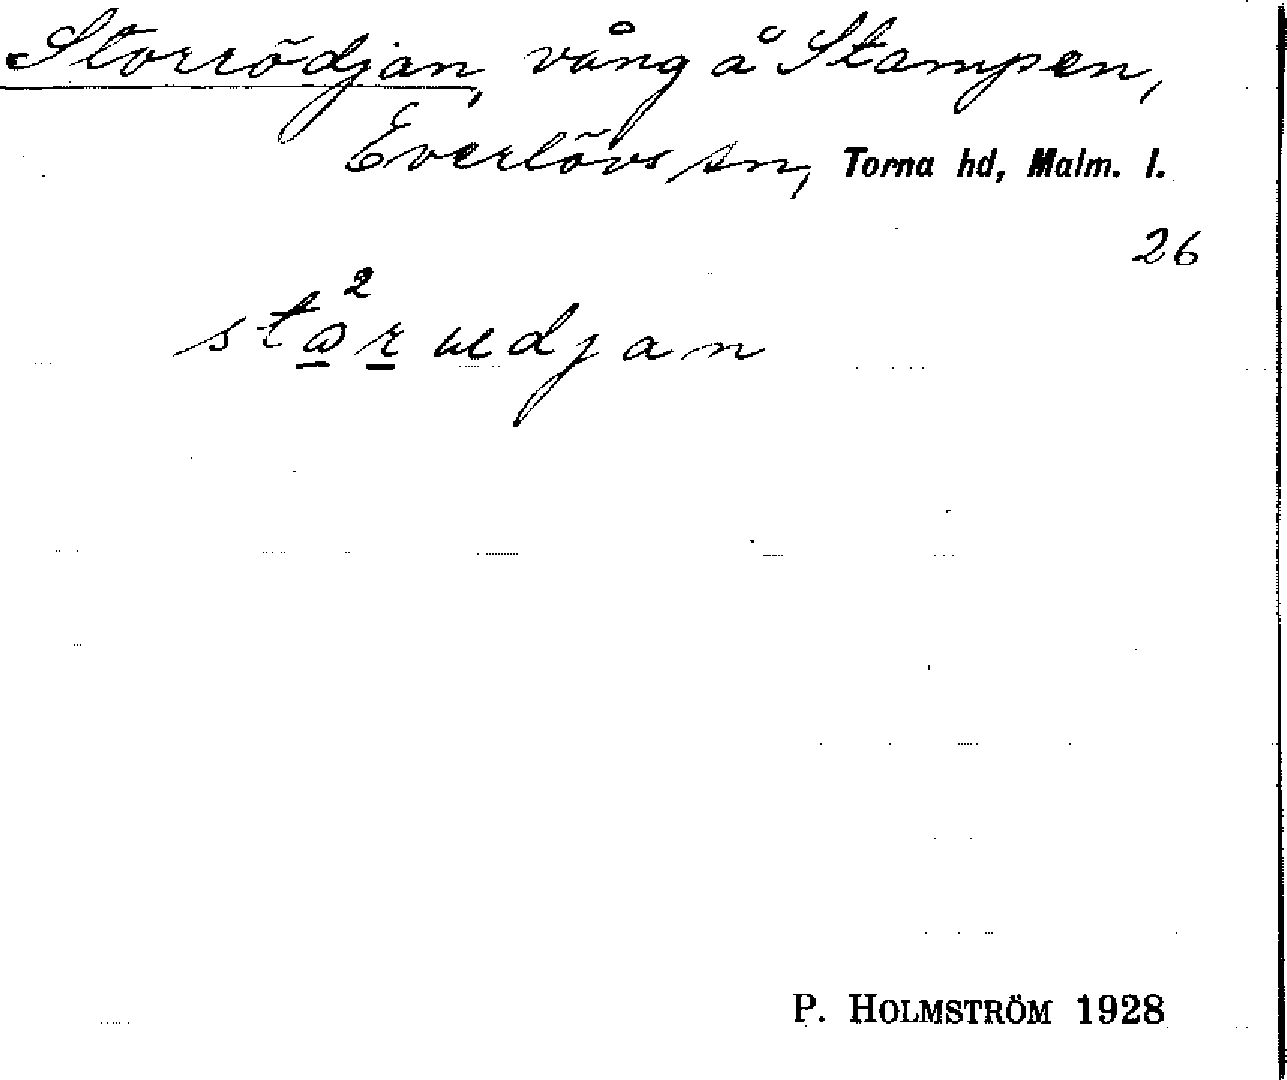 Storrödjan, vång å Stampen,
Everlövs sn, Torna hd, Malm. l.
26
P. HOLMSTRÖM 1928